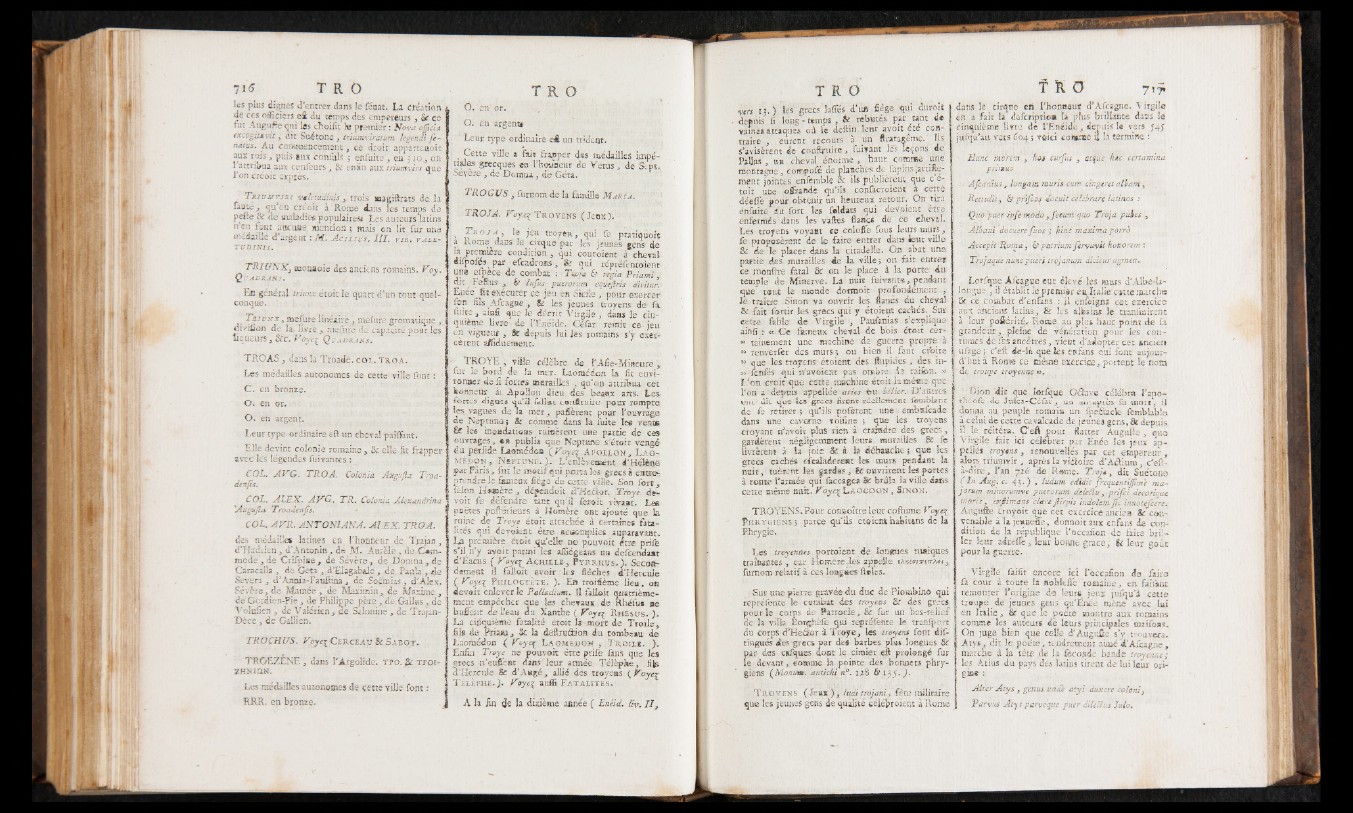 716 TRO
les plus dignes d'entrer dans le ſénat. La création
de ces officiers eſt du temps des empereurs, & ce
fut Auguſte qui les choiſit le premier : Nova officia
excogitavit, dit Suétone, triumviratum legendi ſe-
natus. Au commencement, ce droit appartenoit
aux rois, puis aux conſuls ; enſuite, en 310, on
l'attribua aux cenſeurs, & enfin aux triumvirs que
l'on créoit exprès.
TRIUMVIRI valetudinis, trois magiſtrats de la
ſanté, qu'on créoit à Rome dans les temps de
peſte & de maladies populaires. Les auteurs latins
n'en font aucune mention ; mais on lit ſur une
médaille d'argent : M. ACILIUS. III. VIR. VALE-
TUDINIS.
TRIUNX, monnoie des anciens romains. Voy.
QUADRANS.
En général triunx étoit le quart d'un tout quel-
conque.
TRIUNX, meſure linéaire, meſure gromatique,
diviſion de la livre, meſure de capacité pour les
liqueurs, &c. Voyez QUADRANS.
TROAS, dans la Troade. COL. TROA.
Les médailles autonomes de cette ville ſont :
C. en bronze.
O. en or.
O. en argent.
Leur type ordinaire eſt un cheval paiſſant.
Elle devint colonie romaine, & elle fit frapper
avec les légendes ſuivantes :
COL. AVG. TROA. Colonia Auguſta Troa-
denſis.
COL. ALEX. AVG. TR. Colonia Alexandrina
Auguſta Troadenſis.
COL. AVR. ANTONIANA. ALEX. TROA.
des médailles latines en l'honneur de Trajan,
d'Hadrien, d'Antonin, de M. Aurèle, de Com-
mode, de Criſpine, de Sévère, de Domna, de
Caracalla, de Geta, d'Elagabale, de Paula, de
Severa, d'Annia-Fauſtina, de Soémias, d'Alex.
Sévère, de Mamée, de Maximin, de Maxime,
de Gordien-Pie, de Philippe père, de Gallus, de
Voluſien, de Valérien, de Salonine, de Trajan-
Dèce, de Gallien.
TROCHUS. Voyez CERCEAU & SABOT.
TROEZÈNE, dans l'Argolide. ΤΡΟ. & ΤΡΟΙ-
ΖΗΝΙΩΝ.
Les médailles autonomes de cette ville ſont :
RRR. en bronze.
TRO
O. en or.
O. en argent.
Leur type ordinaire eſt un trident.
Cette ville a fait frapper des médailles impé-
riales grecques en l'honneur de Verus, de Sept.
Sévère, de Domna, de Géta.
TROGUS, ſurnom de la famille MARIA.
TROJA. Voyez TROYENS (Jeux).
TROJA, le jeu troyen, qui ſe pratiquoit
à Rome dans le cirque par les jeunes gens de
la première condition, qui couroient à cheval
diſpoſés par eſcadrons, & qui repréſentoient
une eſpèce de combat : Troja & regia Priami,
dit Feſtus, & luſus puerorum equeſtris dicitur.
Enée fit exécuter ce jeu en Sicile, pour exercer
ſon fils Aſcagne, & les jeunes troyens de ſa
ſuite, ainſi que le décrit Virgile, dans le cin-
quième livre de l'Enéide. Céſar remit ce jeu
en vigueur, & depuis lui les romains s'y exer-
cèrent aſſiduement.
TROYE, ville célèbre de l'Aſie-Mineure,
ſur le bord de la mer. Laomédon la fit envi-
ronner de ſi fortes murailles, qu'on attribua cet
honneur à Apollon dieu des beaux arts. Les
fortes digues qu'il fallut conſtruire pour rompre
les vagues de la mer, paſſèrent pour l'ouvrage
de Neptune ; & comme dans la ſuite les vents
& les inondations ruinèrent une partie de ces
ouvrages, on publia que Neptune s'étoit vengé
du perfide Laomédon (Voyez APOLLON, LAO-
MÉDON, NEPTUNE.). L'enlèvement d'Hélène
par Pâris, fut le motif qui porta les grecs à entre-
prendre le fameux ſiège de cette ville. Son ſort,
ſelon Homère, dépendoit d'Hector. Troye de-
voit ſe défendre tant qu'il ſeroit vivant. Les
poètes poſtérieurs à Homère ont ajouté que la
ruine de Troye étoit attachée à certaines fata-
lités qui devoient être accomplies auparavant.
La première étoit qu'elle ne pouvoit être priſe
s'il n'y avoit parmi les aſſiégeans un deſcendant
d'Eacus (Voyez ACHILLE, PYRRHUS.). Secon-
dement il falloit avoir les flèches d'Hercule
(Voyez PHILOCTÈTE.). En troiſième lieu, on
devoit enlever le Palladium. Il falloit quatrième-
ment empêcher que les chevaux de Rhéſus ne
buſſent de l'eau du Xanthe (Voyez RHÉSUS.).
La cinquième fatalité étoit la mort de Troïle,
fils de Priam, & la deſtruction du tombeau de
Laomédon (Voyez LAOMÉDON, TROÏLE.).
Enfin Troye ne pouvoit être priſe ſans que les
grecs n'euſſent dans leur armée Télèphe, fils
d'Hercule & d'Augé, allié des troyens (Voyez
TÉLÈPHE.). Voyez auſſi FATALITÉS.
A la fin de la dixième année (Enéid. liv. II,
TRO
vers 13.) les grecs laſſés d'un ſiége qui duroit
depuis ſi long-temps, & rebutés par tant de
vaines attaques où le deſtin leur avoit été con-
traire, eurent recours à un ſtratagême. Ils
s'avisèrent de conſtruire, ſuivant les leçons de
Pallas, un cheval énorme, haut comme une
montagne, compoſé de planches de ſapins artiſte-
ment jointes enſemble & ils publièrent que c'é-
toit une offrande qu'ils conſacroient à cette
déeſſe pour obtenir un heureux retour. On tira
enſuite au ſort les ſoldats qui devoient être
enfermés dans les vaſtes flancs de ce cheval.
Les troyens voyant ce coloſſe ſous leurs murs,
ſe propoſèrent de le faire entrer dans leur ville
& de le placer dans la citadelle. On abat une
partie des murailles de la ville ; on fait entrer
ce monſtre fatal & on le place à la porte du
temple de Minerve. La nuit ſuivante, pendant
que tout le monde dormoit profondément,
le traître Sinon va ouvrir les flancs du cheval
& fait ſortir les grecs qui y étoient cachés. Sur
cette fable de Virgile, Pauſanias s'explique
ainſi : « Ce fameux cheval de bois étoit cer-
» tainement une machine de guerre propre à
» renverſer des murs ; ou bien il faut croire
» que les troyens étoient des ſtupides, des in-
» ſenſés qui n'avoient pas ombre de raiſon. »
L'on croit que cette machine étoit la même que
l'on a depuis appellée aries ou bélier. D'autres
ont dit que les grecs firent réellement ſemblant
de ſe retirer ; qu'ils poſèrent une embuſcade
dans une caverne voiſine ; que les troyens
croyant n'avoir plus rien à craindre des grecs,
gardèrent négligemment leurs murailles & ſe
livrèrent à la joie & à la débauche ; que les
grecs cachés eſcaladèrent les murs pendant la
nuit, tuèrent les gardes, & ouvrirent les portes
à toute l'armée qui ſaccagea & brûla la ville dans
cette même nuit. Voyez LAOCOON, SINON.
TROYENS. Pour connoître leur coſtume Voyez
PHRYGIENS ; parce qu'ils étoient habitans de la
Phrygie.
Les troyennes portoient de longues tuniques
traînantes, car Homère les appelle
ſurnom relatif à ces longues ſtoles.
Sur une pierre gravée du duc de Piombino qui
repréſente le combat des troyens & des grecs
pour le corps de Patrocle, & ſur un bas-relief
de la ville Borghèſe qui repréſente le tranſport
du corps d'Hector à Troye, les troyens ſont diſ-
tingués des grecs par des barbes plus longues &
par des caſques dont le cimier eſt prolongé ſur
le devant, comme la pointe des bonnets phry-
giens (Monum. antichi n°. 128 & 135.).
TROYENS (Jeux), ludi trojani, fête militaire
que les jeunes gens de qualité célébroient à Rome
TRO 717
dans le cirque en l'honneur d'Aſcagne. Virgile
en a fait la deſcription la plus brillante dans le
cinquième livre de l'Enéide, depuis le vers 545
juſqu'au vers 604 ; voici comme il la termine :
Hunc morem, hos curſus, atque hæc certamina
primus
Aſcanius, longam muris cum cingeret albam,
Retulit, & priſcos docuit celebrare latinos :
Quo puer ipſe modo, ſecum quo Troja pubes,
Albani docuere ſuos ; hinc maxima porrò
Accepit Roma, & patrium ſervavit honorem :
Trojaque nunc pueri trojanum dicitur agmen.
Lorſque Aſcagne eut élevé les murs d'Albe-la-
longue, il établit le premier en Italie cette marche
& ce combat d'enfans : il enſeigna cet exercice
aux anciens latins, & les albains le tranſmirent
à leur poſtérité. Rome au plus haut point de ſa
grandeur, pleine de vénération pour les cou-
tumes de ſes ancêtres, vient d'adopter cet ancien
uſage ; c'eſt de-là que les enfans qui font aujour-
d'hui à Rome ce même exercice, portent le nom
de troupe troyenne ».
Dion dit que lorſque Octave célébra l'apo-
théoſe de Jules-Céſar, un an après ſa mort, il
donna au peuple romain un ſpectacle ſemblable
à celui de cette cavalcade de jeunes gens, & depuis
il le réitéra. C'eſt pour flatter Auguſte, que
Virgile fait ici célébrer par Enée les jeux ap-
pellés troyens, renouvellés par cet empereur,
alors triumvir, après la victoire d'Actium, c'eſt-
à-dire, l'an 726 de Rome. Troja, dit Suétone
(In Aug. c. 43.), ludum edidit frequentiſſimè ma-
jorum minorumve puerorum delectu, priſci decorique
moris, exiſtimans claræ ſtirpis indolem ſic innoteſcere.
Auguſte croyoit que cet exercice ancien & con-
venable à la jeuneſſe, donnoit aux enfans de con-
dition de la république l'occaſion de faire bril-
ler leur adreſſe, leur bonne grace, & leur goût
pour la guerre.
Virgile ſaiſit encore ici l'occaſion de faire
ſa cour à toute la nobleſſe romaine, en faiſant
remonter l'origine de leurs jeux juſqu'à cette
troupe de jeunes gens qu'Enée mène avec lui
en Italie, & que le poète montre aux romains
comme les auteurs de leurs principales maiſons.
On juge bien que celle d'Auguſte s'y trouvera.
Atys, dit le poëte, tendrement aimé d'Aſcagne,
marche à la tête de la ſeconde bande troyenne ;
les Atius du pays des latins tirent de lui leur ori-
gine :
Alter Atys, genus unde atyi duxere latini,
Parvus Atys pueroque puer dilectus Iulo.